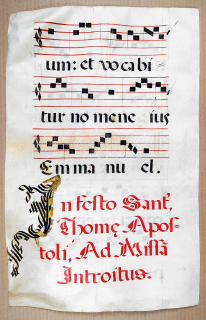 um: et vocabi
tur nomene ius
Emmanuel.
In festo Sanct,
Thomę Apos-
toli, Ad Missã
Introitus.